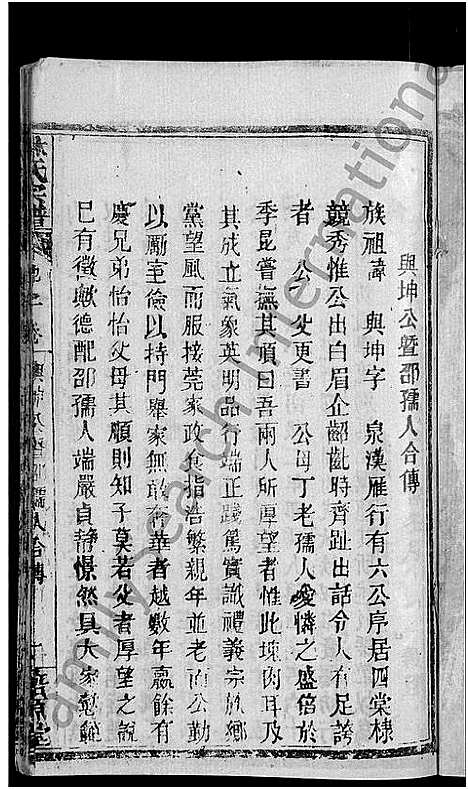 與坤公暨邵孺人合傳
族祖諱 與坤字 泉漢雁行有六公序居四棠棣
競秀惟公出白眉企齠齔時齊趾出話令人有足誇
者 公父更書 公母丁老孺人愛憐之盛倍於
季昆嘗撫其頂曰吾兩人所厚望者惟此塊肉耳及
其成立氣象英明品行端正踐篤實識禮義宗族鄉
黨望風而服接莞家政食指浩繁親年並老而公勤
以勵至儉以持門舉家無敢奢華者越數年贏餘有
慶兄弟怡怡父母其順則知子莫若父者厚望之說
已有徵歟德配邵孺人端嚴貞靜憬然具大家懿範
氏宗譜
與坤公暨邵孺人合傳
FamilySearch International